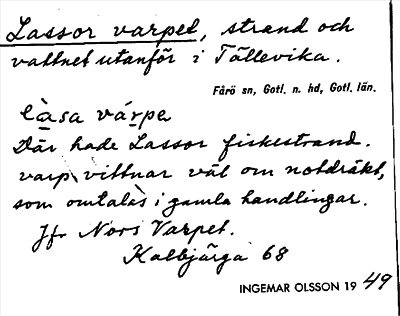 Lassor varpet, strand och
vattnet utanför i Tällevika.
Fårö sn, Gotl. n. hd, Gotl. län.
làsa várpe
Där hade Lassor fiskestrand.
varp vittnar väl om notdräkt,
som omtalas i gamla handlingar.
Jfr Nors Varpet.
Kalbjärga 68
INGEMAR OLSSON 19 49